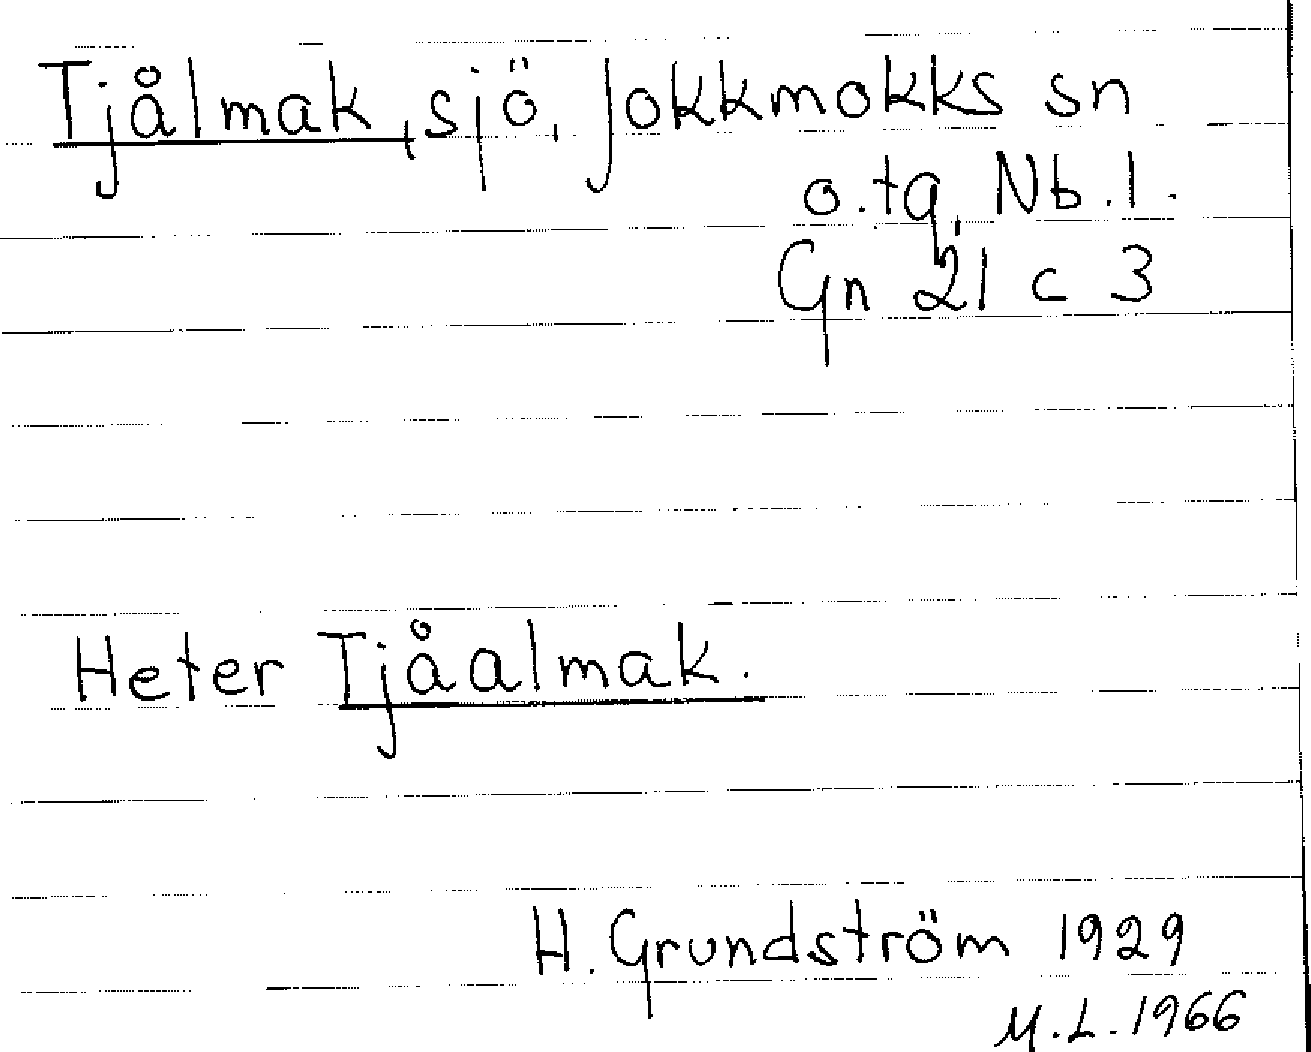 Tjålmak, sjö, Jokkmokks sn
o. tg, Nb. l.
Gn 21 c 3
Heter Tjåalmak.
H. Grundström 1929
M.L. 1966